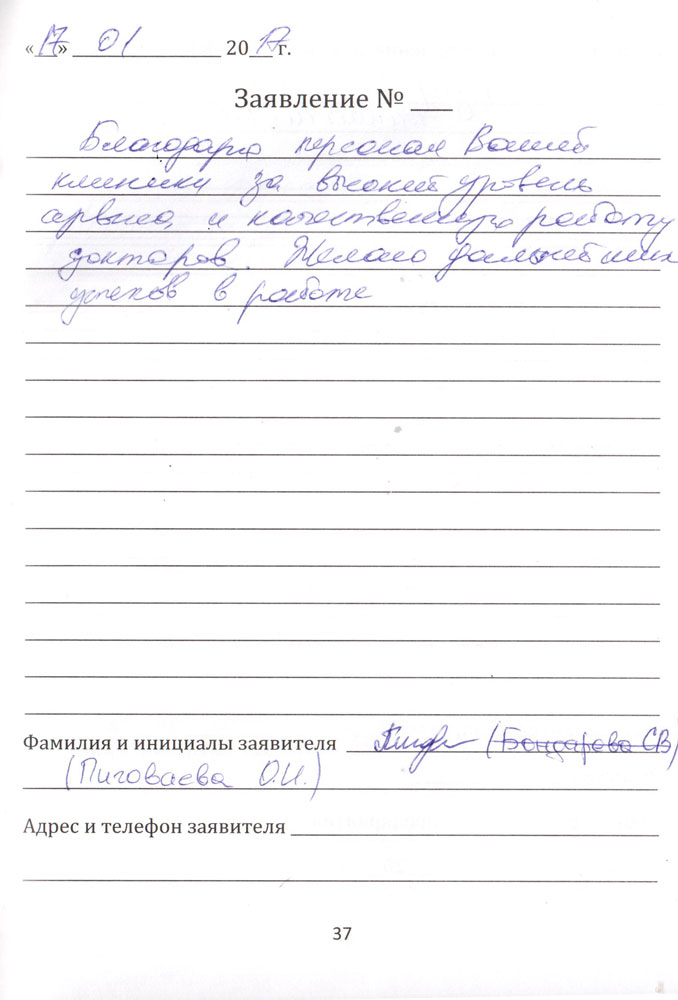 «17» 01 2017 г.
Заявление № ___
Благодарю персонал Вашей
клиники за высокий уровень
сервиса, и качественную работу
докторов. Желаю дальнейших
успехов в работе
Фамилия и инициалы заявителя (Бондарева СВ)
(Пиговаева О.И.)
Адрес и телефон заявителя
37